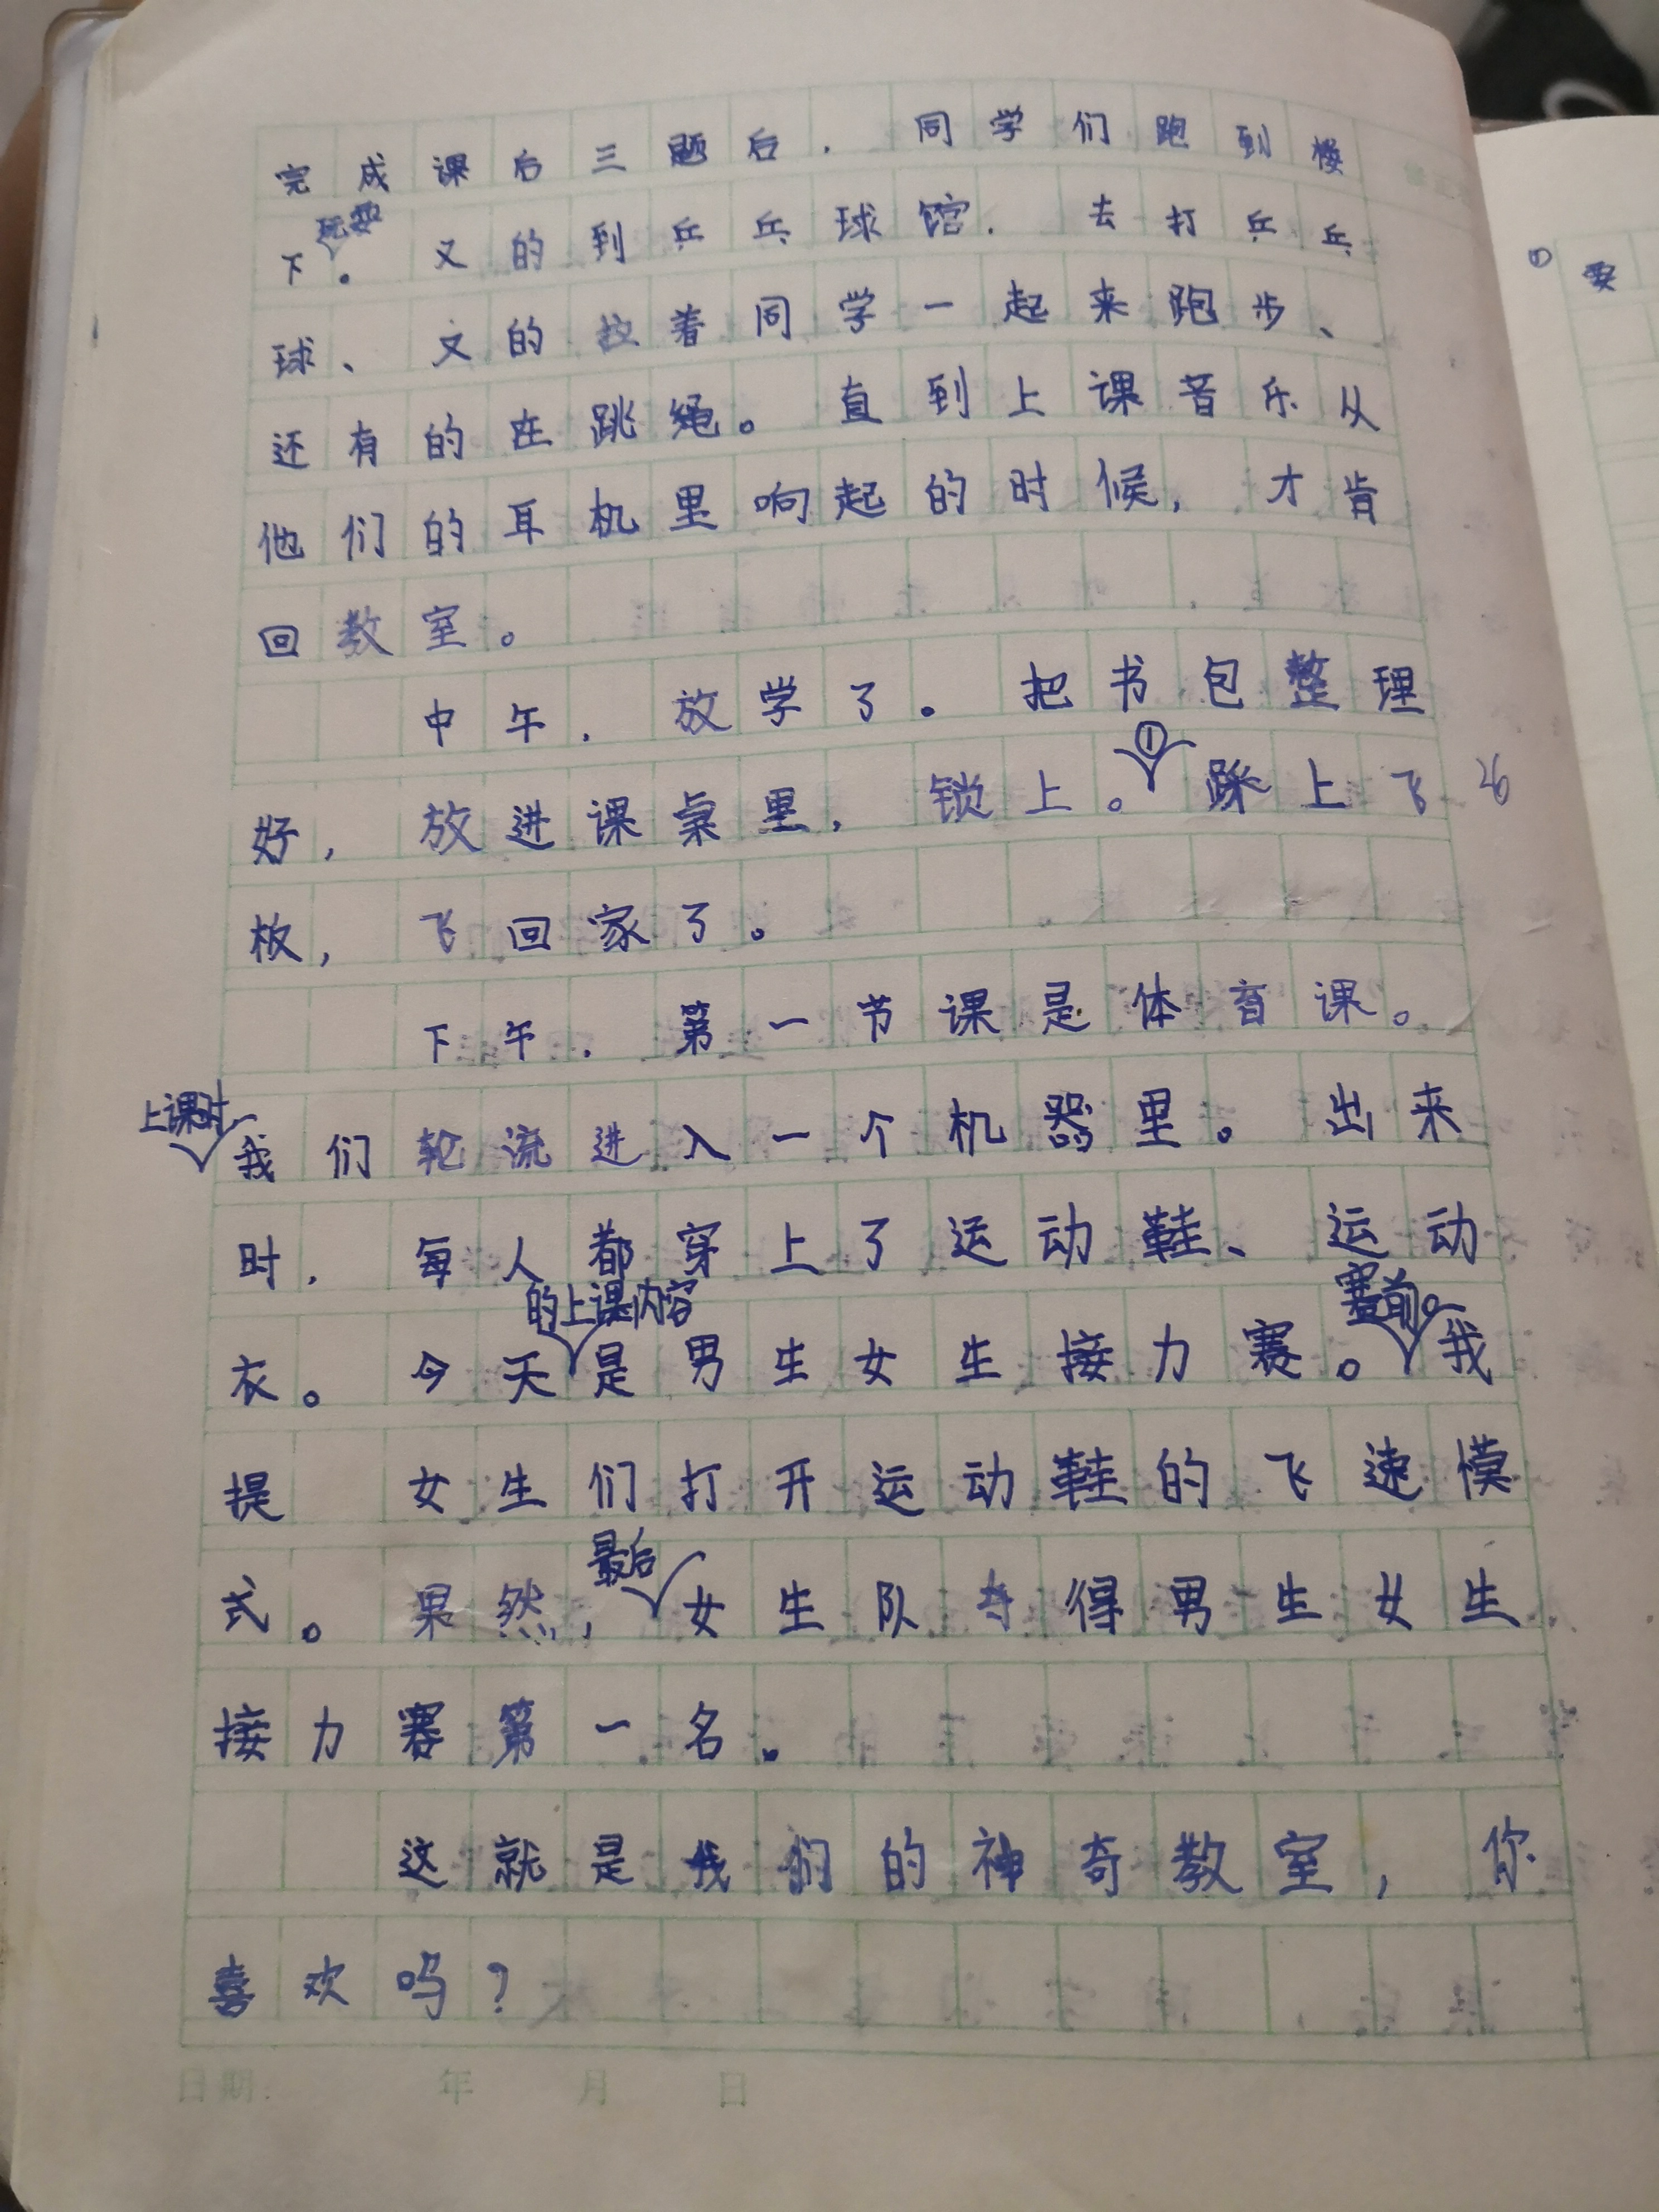 完成课后三题后，同学们跑到楼
玩耍
下。又的到乒乓球馆，去打乒乓
球、又的拉着同学一起来跑步、
还有的在跳绳。直到上课音乐从
他们的耳机里响起的时候，才肯
回教室。
中午，放学了。把书包整理
①
好，放进课桌里，锁上。踩上飞
板，飞回家了。
下午，第一节课是体育课。
上课时
我们轮流进入一个机器里。出来
时，每人都穿上了运动鞋、运动
的上课内容 赛前。
衣。今天是男生女生接力赛。我
提 女生们打开运动鞋的飞速模
最后
式。果然，女生队夺得男生女生
接力赛第一名。
这就是我们的神奇教室，你
喜欢吗？
日期： 年 月 日
①